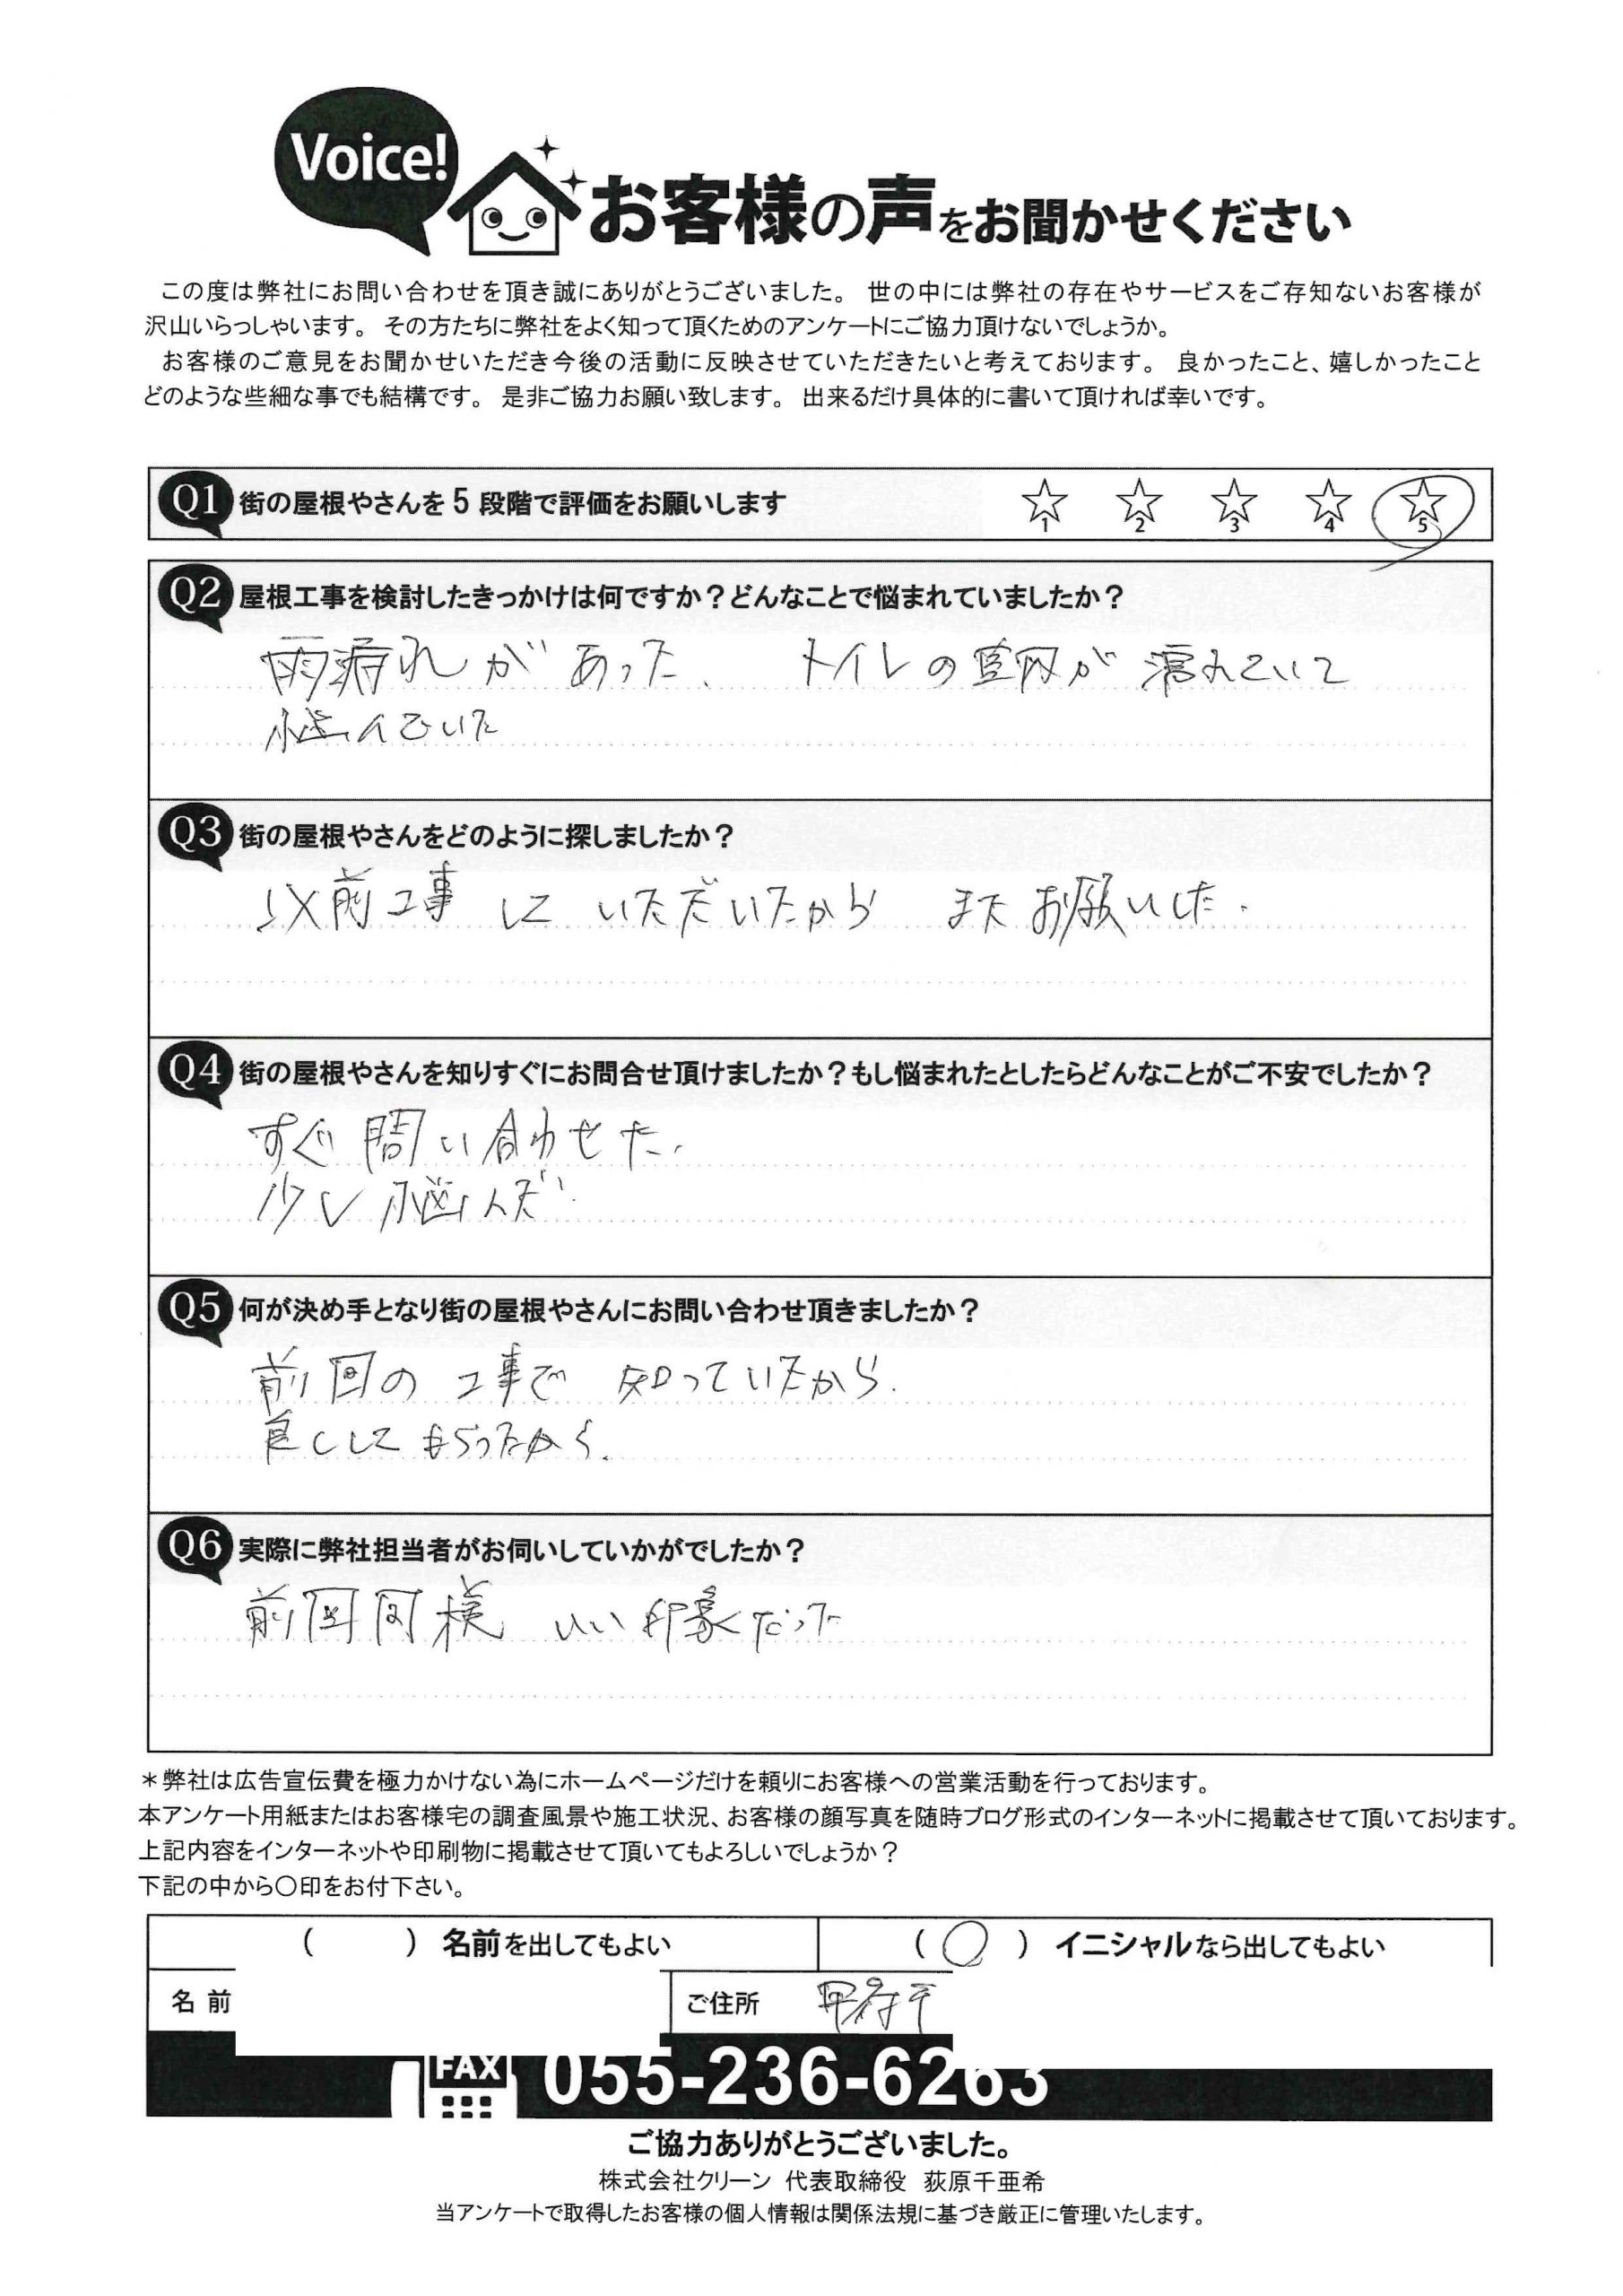 Voice!
お客様の声をお聞かせください
この度は弊社にお問い合わせを頂き誠にありがとうございました。 世の中には弊社の存在やサービスをご存知ないお客様が
沢山いらっしゃいます。 その方たちに弊社をよく知って頂くためのアンケートにご協力頂けないでしょうか。
お客様のご意見をお聞かせいただき今後の活動に反映させていただきたいと考えております。 良かったこと、嬉しかったこと
どのような些細な事でも結構です。 是非ご協力お願い致します。 出来るだけ具体的に書いて頂ければ幸いです。
Q1 街の屋根やさんを 5 段階で評価をお願いします ☆1 ☆2 ☆3 ☆4 ☆5
Q2 屋根工事を検討したきっかけは何ですか？どんなことで悩まれていましたか？
雨漏れがあった、 トイレの が 濡れていて
悩んでいた
Q3 街の屋根やさんをどのように探しましたか？
以前工事 して いただいたから またお願いした.
Q4 街の屋根やさんを知りすぐにお問合せ頂けましたか？もし悩まれたとしたらどんなことがご不安でしたか？
すぐ問い合わせた.
少し悩んだ.
Q5 何が決め手となり街の屋根やさんにお問い合わせ頂きましたか？
前回の工事で 知っていたから.
良くしてもらったから.
Q6 実際に弊社担当者がお伺いしていかがでしたか？
前回同様 いい印象だった
＊弊社は広告宣伝費を極力かけない為にホームページだけを頼りにお客様への営業活動を行っております。
本アンケート用紙またはお客様宅の調査風景や施工状況、お客様の顔写真を随時ブログ形式のインターネットに掲載させて頂いております。
上記内容をインターネットや印刷物に掲載させて頂いてもよろしいでしょうか？
下記の中から〇印をお付下さい。
( ) 名前を出してもよい (〇) イニシャルなら出してもよい
名 前 ご住所 甲府市
FAX 055-236-6263
ご協力ありがとうございました。
株式会社クリーン 代表取締役 荻原千亜希
当アンケートで取得したお客様の個人情報は関係法規に基づき厳正に管理いたします。